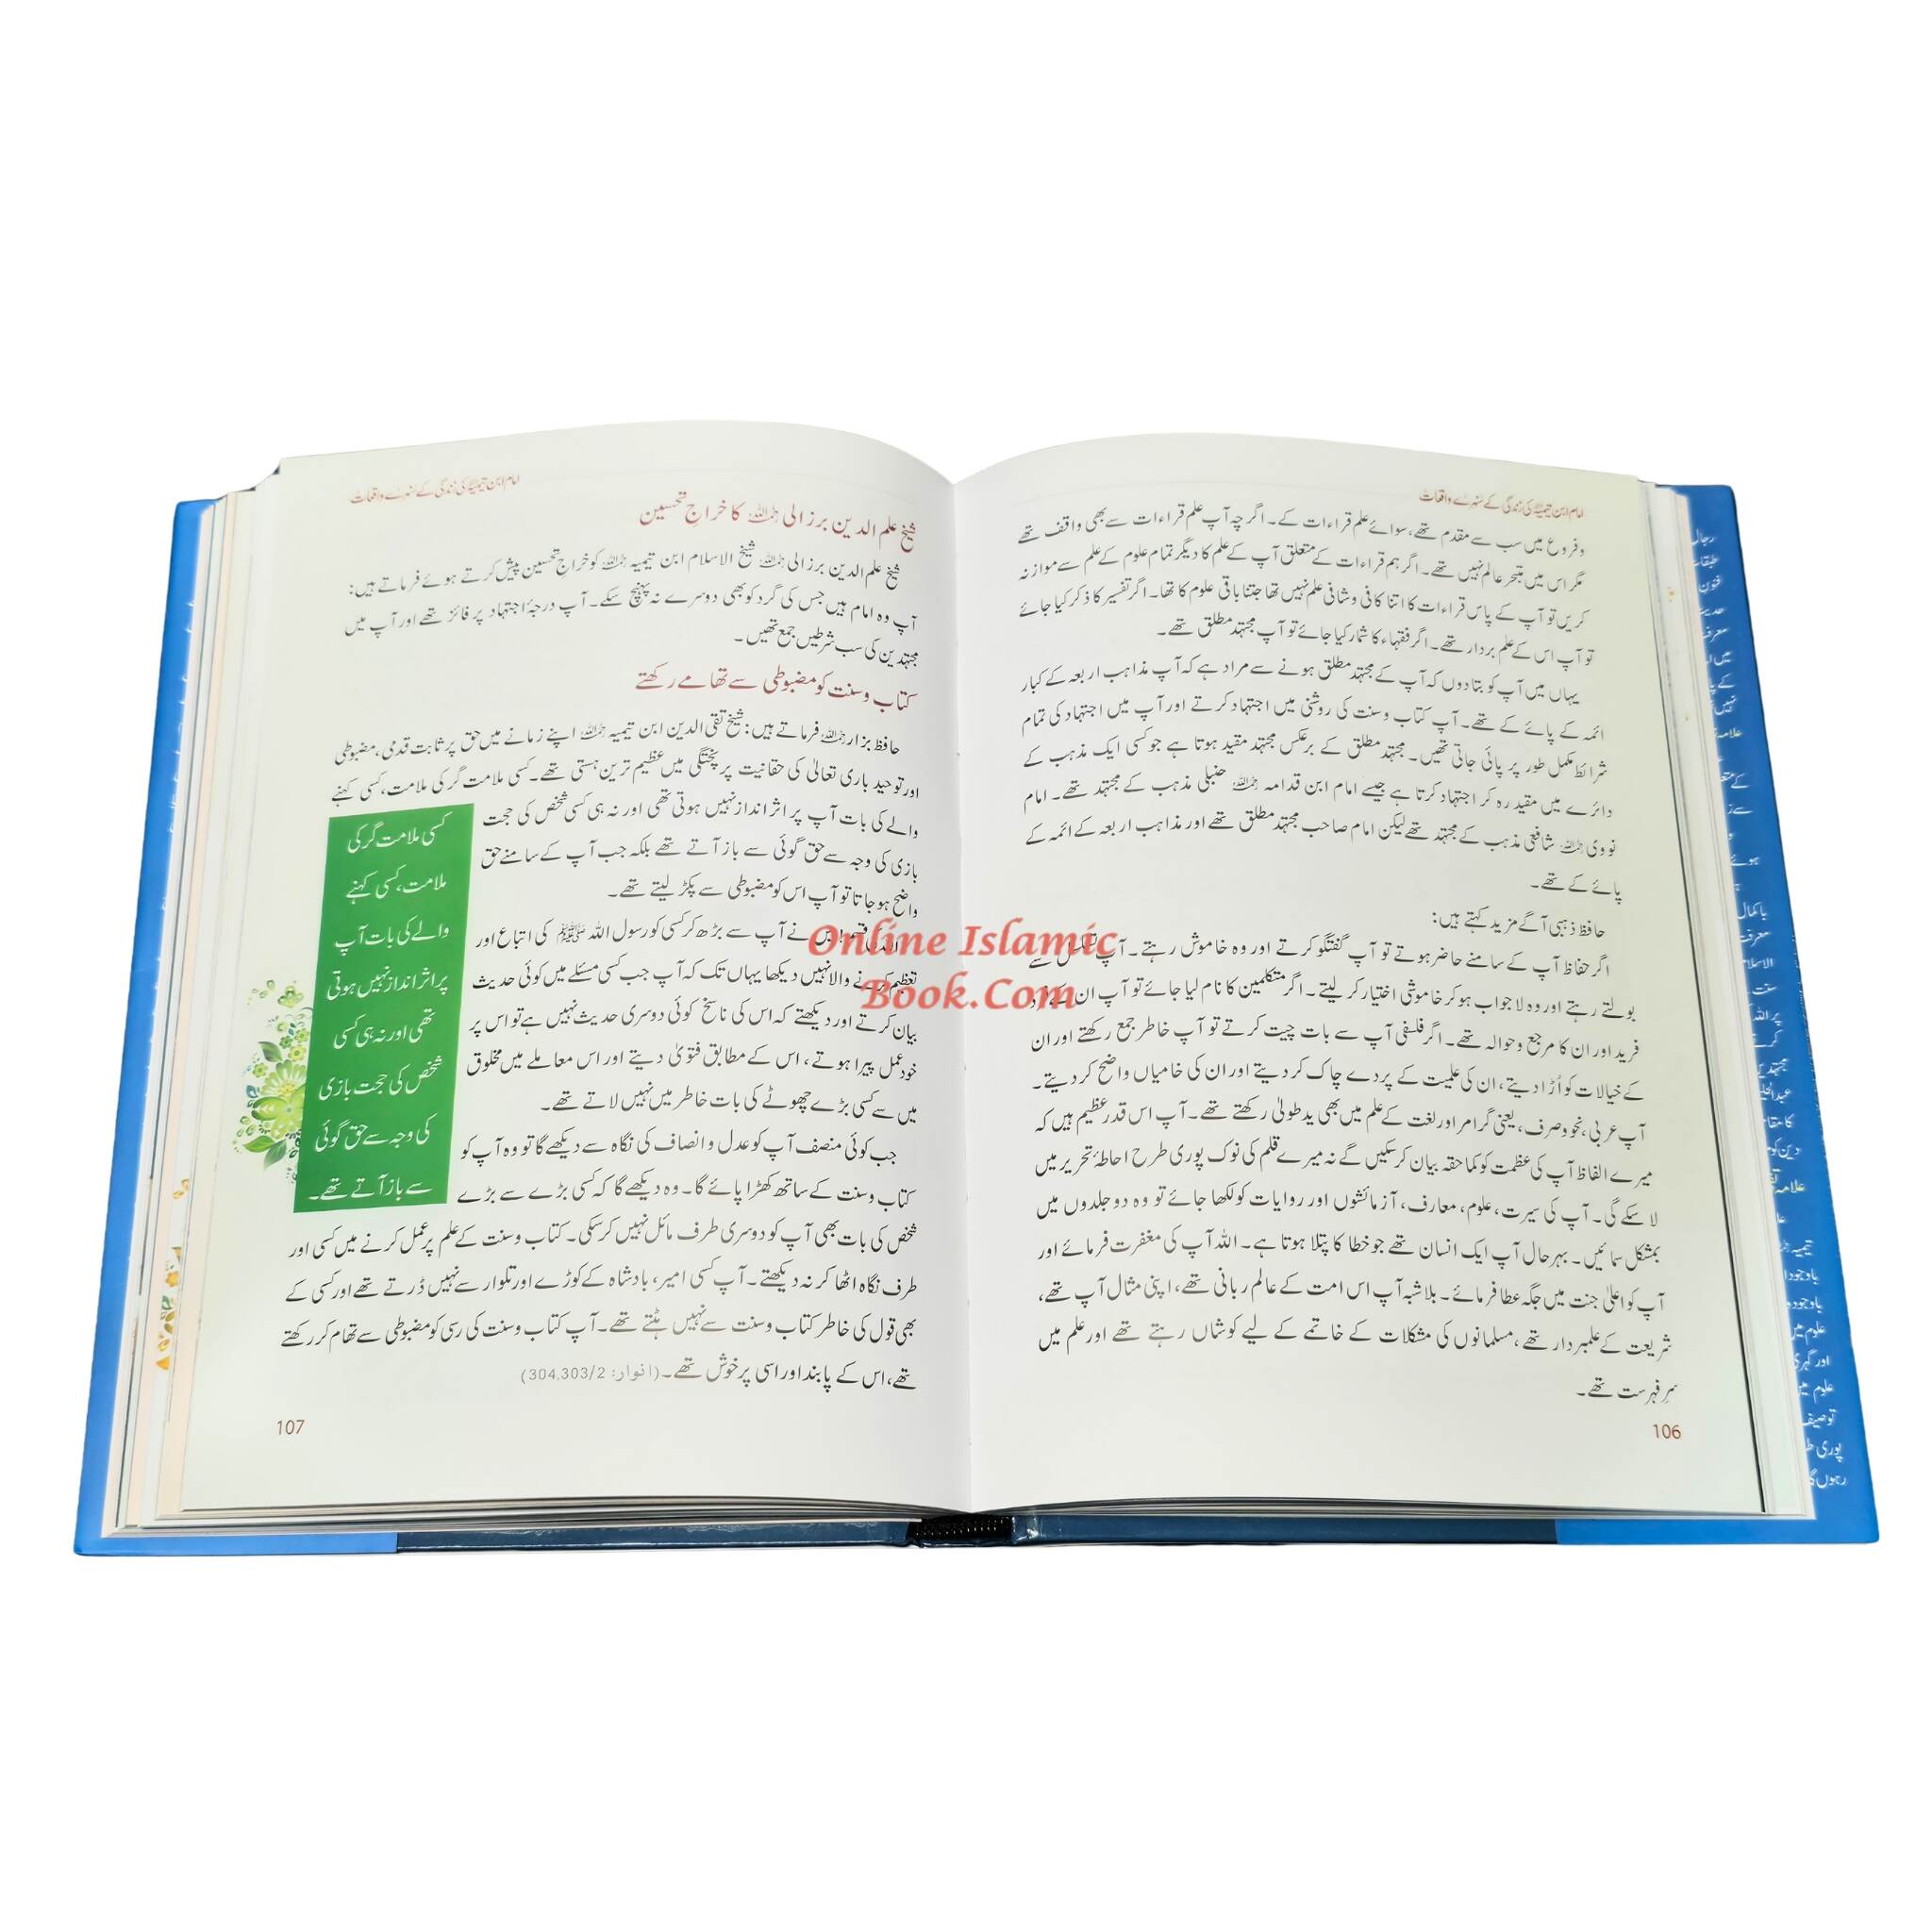 امام ابن تیمیہ کی زندگی کے سنہرے واقعات
وفروع میں سب سے مقدم تھے، سوائے علم قراءات کے۔ اگرچہ آپ علم قراءات سے بھی واقف تھے
مگر اس میں متبحر عالم نہیں تھے۔ اگر ہم قراءات کے متعلق آپ کے علم کا دیگر تمام علوم کے علم سے موازنہ
کریں تو آپ کے پاس قراءات کا اتنا کافی وشافی علم نہیں تھا جتنا باقی علوم کا تھا۔ اگر تفسیر کا ذکر کیا جائے
تو آپ اس کے علم بردار تھے۔ اگر فقہاء کا شمار کیا جائے تو آپ مجتہد مطلق تھے۔
یہاں میں آپ کو بتادوں کہ آپ کے مجتہد مطلق ہونے سے مراد ہے کہ آپ مذاہب اربعہ کے کبار
ائمہ کے پائے کے تھے۔ آپ کتاب وسنت کی روشنی میں اجتہاد کرتے اور آپ میں اجتہاد کی تمام
شرائط مکمل طور پر پائی جاتی تھیں۔ مجتہد مطلق کے برعکس مجتہد مقید ہوتا ہے جو کسی ایک مذہب کے
دائرے میں مقید رہ کر اجتہاد کرتا ہے جیسے امام ابن قدامہ رحمہ اللہ حنبلی مذہب کے مجتہد تھے۔ امام
نووی رحمہ اللہ شافعی مذہب کے مجتہد تھے لیکن امام صاحب مجتہد مطلق تھے اور مذاہب اربعہ کے ائمہ کے
پائے کے تھے۔
حافظ ذہبی آگے مزید کہتے ہیں:
اگر حفاظ آپ کے سامنے حاضر ہوتے تو آپ گفتگو کرتے اور وہ خاموش رہتے۔ آپ تسلسل سے
بولتے رہتے اور وہ لاجواب ہوکر خاموشی اختیار کر لیتے۔ اگر متکلمین کا نام لیا جائے تو آپ ان کے فرد
فرید اور ان کا مرجع وحوالہ تھے۔ اگر فلسفی آپ سے بات چیت کرتے تو آپ خاطر جمع رکھتے اور ان
کے خیالات کو اُڑا دیتے، ان کی علمیت کے پردے چاک کر دیتے اور ان کی خامیاں واضح کر دیتے۔
آپ عربی، نحو وصرف، یعنی گرامر اور لغت کے علم میں بھی ید طولیٰ رکھتے تھے۔ آپ اس قدر عظیم ہیں کہ
میرے الفاظ آپ کی عظمت کو کما حقہ بیان کر سکیں گے نہ میرے قلم کی نوک پوری طرح احاطۂ تحریر میں
لا سکے گی۔ آپ کی سیرت، علوم، معارف، آزمائشوں اور روایات کو لکھا جائے تو وہ دو جلدوں میں
بمشکل سمائیں۔ بہرحال آپ ایک انسان تھے جو خطا کا پتلا ہوتا ہے۔ اللہ آپ کی مغفرت فرمائے اور
آپ کو اعلیٰ جنت میں جگہ عطا فرمائے۔ بلاشبہ آپ اس امت کے عالم ربانی تھے، اپنی مثال آپ تھے،
شریعت کے علمبردار تھے، مسلمانوں کی مشکلات کے خاتمے کے لیے کوشاں رہتے تھے اور علم میں
سرِ فہرست تھے۔
106
امام ابن تیمیہ کی زندگی کے سنہرے واقعات
شیخ علم الدین برزالی رحمہ اللہ کا خراجِ تحسین
شیخ علم الدین برزالی رحمہ اللہ شیخ الاسلام ابن تیمیہ رحمہ اللہ کو خراجِ تحسین پیش کرتے ہوئے فرماتے ہیں:
آپ وہ امام ہیں جس کی گرد کو بھی دوسرے نہ پہنچ سکے۔ آپ درجۂ اجتہاد پر فائز تھے اور آپ میں
مجتہدین کی سب شرطیں جمع تھیں۔
کتاب وسنت کو مضبوطی سے تھامے رکھتے
حافظ بزار رحمہ اللہ فرماتے ہیں: شیخ تقی الدین ابن تیمیہ رحمہ اللہ اپنے زمانے میں حق پر ثابت قدمی، مضبوطی
اور توحید باری تعالیٰ کی حقانیت پر پختگی میں عظیم ترین ہستی تھے۔ کسی ملامت گر کی ملامت، کسی کہنے
والے کی بات آپ پر اثر انداز نہیں ہوتی تھی اور نہ ہی کسی شخص کی حجت
بازی کی وجہ سے حق گوئی سے باز آتے تھے بلکہ جب آپ کے سامنے حق
واضح ہوجاتا تو آپ اس کو مضبوطی سے پکڑ لیتے تھے۔
اللہ کی قسم! میں نے آپ سے بڑھ کر کسی کو رسول اللہ ﷺ کی اتباع اور
تعظیم کرنے والا نہیں دیکھا یہاں تک کہ آپ جب کسی مسئلے میں کوئی حدیث
بیان کرتے اور دیکھتے کہ اس کی ناسخ کوئی دوسری حدیث نہیں ہے تو اس پر
خود عمل پیرا ہوتے، اس کے مطابق فتویٰ دیتے اور اس معاملے میں مخلوق
میں سے کسی بڑے چھوٹے کی بات خاطر میں نہیں لاتے تھے۔
جب کوئی منصف آپ کو عدل وانصاف کی نگاہ سے دیکھے گا تو وہ آپ کو
کتاب وسنت کے ساتھ کھڑا پائے گا۔ وہ دیکھے گا کہ کسی بڑے سے بڑے
شخص کی بات بھی آپ کو دوسری طرف مائل نہیں کرسکی۔ کتاب وسنت کے علم پر عمل کرنے میں کسی اور
طرف نگاہ اٹھا کر نہ دیکھتے۔ آپ کسی امیر، بادشاہ کے کوڑے اور تلوار سے نہیں ڈرتے تھے اور کسی کے
بھی قول کی خاطر کتاب وسنت سے نہیں ہٹتے تھے۔ آپ کتاب وسنت کی رسی کو مضبوطی سے تھام کر رکھتے
تھے، اس کے پابند اور اسی پر خوش تھے۔ (انوار: 304,303/2)
کسی ملامت گر کی
ملامت، کسی کہنے
والے کی بات آپ
پر اثر انداز نہیں ہوتی
تھی اور نہ ہی کسی
شخص کی حجت بازی
کی وجہ سے حق گوئی
سے باز آتے تھے۔
107
Online Islamic
Book.Com